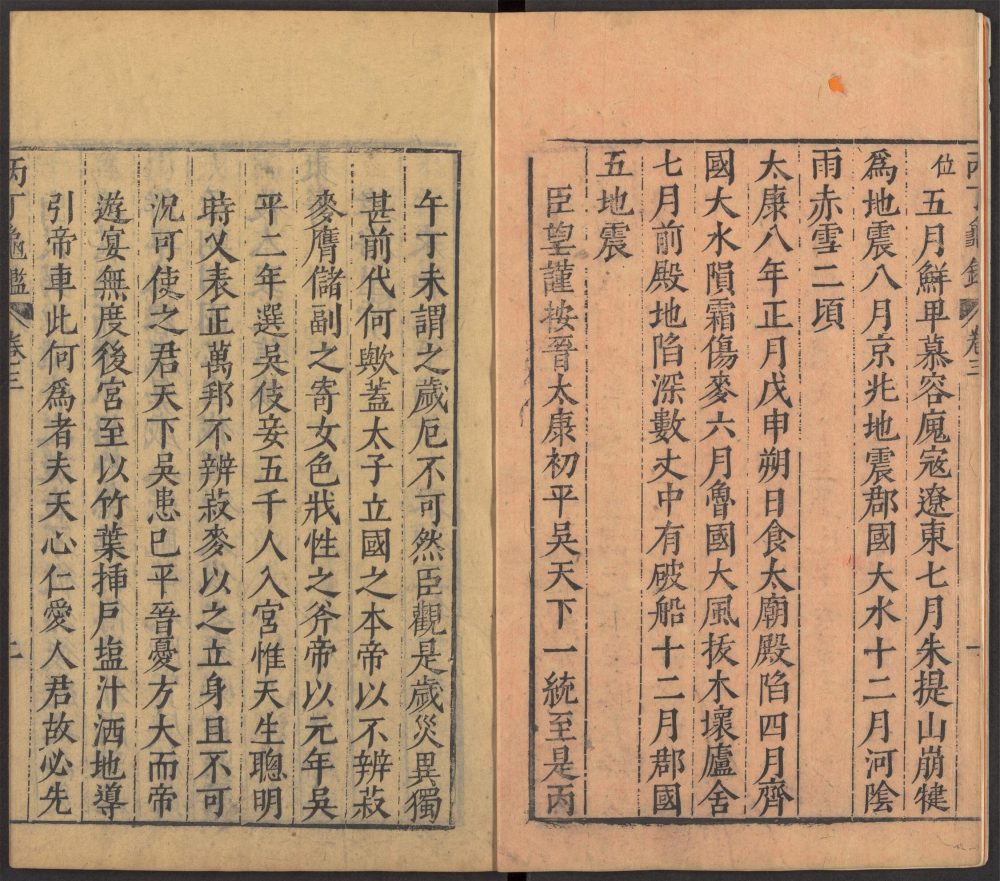 丙丁龜鑑 卷三 一
位五月鮮卑慕容廆寇遼東七月朱提山崩犍
爲地震八月京兆地震郡國大水十二月河陰
雨赤雪二頃
太康八年正月戊申朔日食太廟殿陷四月齊
國大水隕霜傷麥六月魯國大風拔木壞廬舍
七月前殿地陷深數丈中有破船十二月郡國
五地震
臣望謹按晉太康初平吳天下一統至是丙
午丁未謂之歲厄不可然臣觀是歲災異獨
甚前代何歟蓋太子立國之本帝以不辨菽
麥膺儲副之寄女色戕性之斧帝以元年吳
平二年選吳伎妾五千人入宮惟天生聰明
時乂表正萬邦不辨菽麥以之立身且不可
況可使之君天下吳患已平晉憂方大而帝
遊宴無度後宮至以竹葉揷戸塩汁洒地導
引帝車此何爲者夫天心仁愛人君故必先
丙丁龜鑑 卷三 二